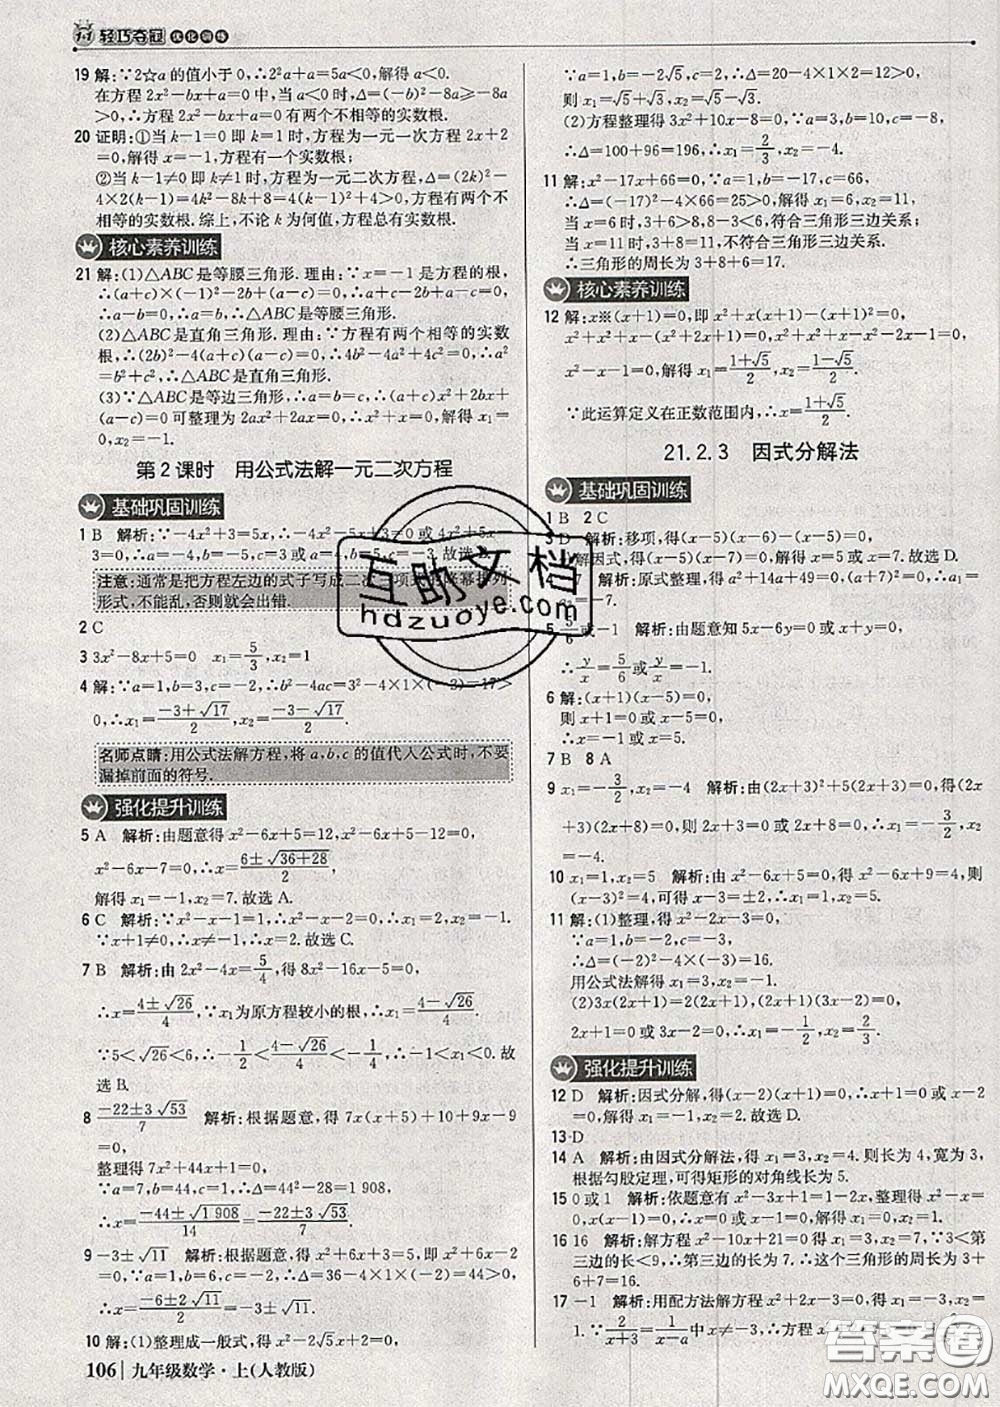 1+1 轻巧夺冠 优化训练
19 解:∵2☆a的值小于0,∴2²a+a=5a<0,解得a<0.
在方程2x²-bx+a=0中,当a<0时,Δ=(-b)²-8a≥-8a
>0,∴方程2x²-bx+a=0有两个不相等的实数根.
20 证明:①当k-1=0即k=1时,方程为一元一次方程2x+2
=0,解得x=-1,方程有一个实数根;
②当k-1≠0即k≠1时,方程为一元二次方程,Δ=(2k)²-
4×2(k-1)=4k²-8k+8=4(k-1)²+4>0,方程有两个不
相等的实数根.综上,不论k为何值,方程总有实数根.
核心素养训练
21 解:(1)△ABC是等腰三角形.理由:∵x=-1是方程的根,
∴(a+c)×(-1)²-2b+(a-c)=0,∴a+c-2b+a-c=0,
∴a-b=0,∴a=b,∴△ABC是等腰三角形.
(2)△ABC是直角三角形.理由:∵方程有两个相等的实数
根,∴(2b)²-4(a+c)(a-c)=0,∴4b²-4a²+4c²=0,∴a²
=b²+c²,∴△ABC是直角三角形.
(3)∵△ABC是等边三角形,∴a=b=c,∴(a+c)x²+2bx+
(a-c)=0可整理为2ax²+2ax=0,∴x²+x=0,解得x₁=
0,x₂=-1.
第2课时 用公式法解一元二次方程
基础巩固训练
1 B 解析:∵-4x²+3=5x,∴-4x²-5x+3=0或4x²+5x-
3=0,∴a=-4,b=-5,c=3或a=4,b=5,c=-3.故选B.
注意:通常是把方程左边的式子写成二次三项式的降幂排列
形式,不能乱,否则就会出错.
2 C
3 3x²-8x+5=0 x₁=5/3,x₂=1
4 解:∵a=1,b=3,c=-2,∴b²-4ac=3²-4×1×(-2)=17>
0,∴x₁=(-3+√17)/2,x₂=(-3-√17)/2.
名师点睛:用公式法解方程,将a,b,c的值代入公式时,不要
漏掉前面的符号.
强化提升训练
5 A 解析:由题意得x²-6x+5=12,x²-6x+5-12=0,
x²-6x-7=0,∴x=(6±√(36+28))/2,
解得x₁=-1,x₂=7.故选A.
6 C 解析:∵x²-x-1=x+1,∴x²-2x-2=0,
∵x+1≠0,∴x≠-1,∴x=2.故选C.
7 B 解析:由2x²-4x=5/4,得8x²-16x-5=0,
∴x=(4±√26)/4,∵x₁为原方程较小的根,∴x₁=(4-√26)/4.
∵5<√26<6,∴-1/2<(4-√26)/4<-1/4,∴-1<x₁<0.故
选B.
8 (-22±3√53)/7 解析:根据题意,得7x(x+4)+10+9x-9
=0,
整理得7x²+44x+1=0,
∵a=7,b=44,c=1,∴Δ=44²-4×7×1=1 908,
∴x=(-44±√1 908)/14=(-22±3√53)/7.
9 -3±√11 解析:根据题意,得(x+3)²+5×0=0,即x²+6x-2=0,
∴x=(-6±2√11)/2=-3±√11.
10 解:(1)整理成一般式,得x²-2√5x+2=0,
∵a=1,b=-2√5,c=2,∴Δ=20-4×1×2=12>0,
则x₁=√5+√3,x₂=√5-√3.
(2)方程整理得3x²+10x-8=0,a=3,b=10,c=-8,
∴Δ=100+96=196,∴x₁=2/3,x₂=-4.
11 解:x²-17x+66=0,a=1,b=-17,c=66,
∴Δ=(-17)²-4×66=25>0,解得x₁=6,x₂=11,
当x=6时,3+6>8,8-3<6,符合三角形三边关系;
当x=11时,3+8=11,不符合三角形三边关系.
∴三角形的周长为3+8+6=17.
核心素养训练
12 解:x※(x+1)=0,即x²+x(x+1)-(x+1)²=0,
x²+x²+x-(x²+2x+1)=0,x²+x²+x-x²-2x-1=0,
x²-x-1=0,解得x₁=(1+√5)/2,x₂=(1-√5)/2.
∵此运算定义在正数范围内,∴x=(1+√5)/2.
21.2.3 因式分解法
基础巩固训练
1 B 2 C
3 D 解析:移项,得(x-5)(x-6)-(x-5)=0,
分解因式,得(x-5)(x-7)=0,解得x=5或x=7.故选D.
4 -7 解析:原式整理,得a²+14a+49=0,(a+7)²=0,∴a₁
=a₂=-7.
5 5/6或-1 解析:由题意知5x-6y=0或x+y=0,
∴y/x=5/6或y/x=-1.
6 解:(x+1)(x-5)=0,
则x+1=0或x-5=0,
∴x₁=-1,x₂=5.
7 B 8 A
9 x₁=-3/2,x₂=-4 解析:由(2x+3)²+5(2x+3)=0,得(2x
+3)(2x+8)=0,则2x+3=0或2x+8=0,∴x₁=-3/2,x₂
=-4.
10 x₁=1,x₂=5 解析:由x²-6x+5=0,得x²-6x+9=4,
则(x-3)²=4,∴x-3=±2,∴x₁=1,x₂=5.
11 解:(1)整理,得x²-2x-3=0,
∵a=1,b=-2,c=-3,
∴Δ=(-2)²-4×1×(-3)=16.
用公式法解得x₁=3,x₂=-1.
(2)3x(2x+1)=2(2x+1),(2x+1)(3x-2)=0,
2x+1=0或3x-2=0,∴x₁=-1/2,x₂=2/3.
强化提升训练
12 D 解析:因式分解,得(x-2)(x+1)=0,∴x-2=0或x+1
=0,解得x₁=2,x₂=-1.故选D.
13 D
14 A 解析:由因式分解法,得x₁=3,x₂=4.则长为4,宽为3,
根据勾股定理,可得矩形的对角线长为5.
15 0或1 解析:依题意有x²-3x+1=1-2x,整理,得x²-x=
0,x(x-1)=0,∴x=0或x-1=0,∴x₁=0,x₂=1.
16 16 解析:解方程x²-10x+21=0得x₁=3,x₂=7,∵3<第
三边的长<9,∴第三边的长为7.∴这个三角形的周长为3+
6+7=16.
17 -1 解析:用配方法解方程x²+2x
=1.∵2/(x+3)=1/(x-a)中x+3≠
106 九年级数学·上(人教版)
互助文档
hdzuoye.com
答案圈
MXQE.COM